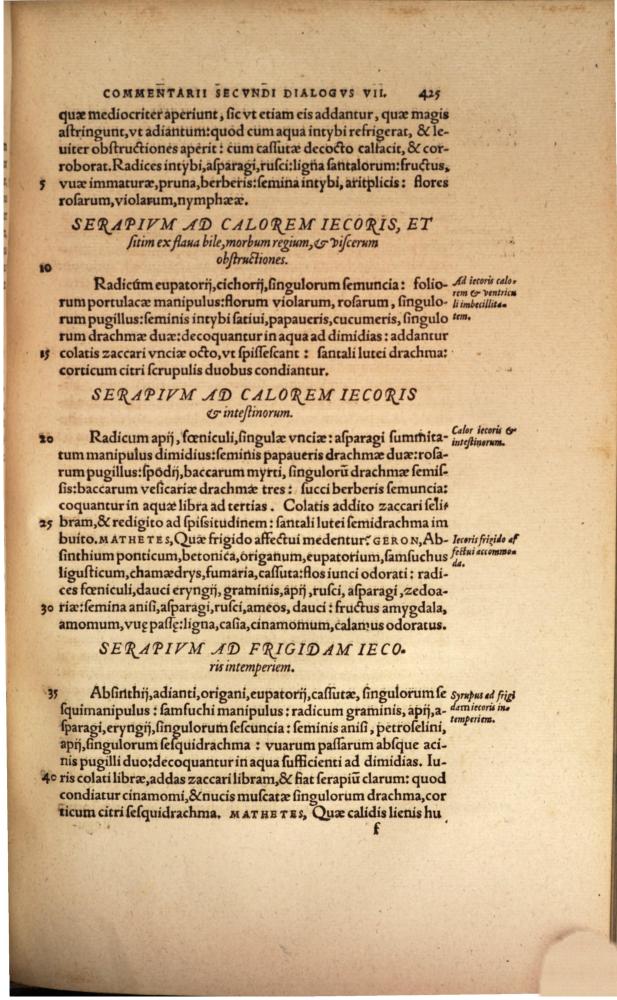 COMMENTARII SECVNDI DIALOGVS VII. 425
quæ mediocriter aperiunt, sic vt etiam eis addantur, quæ magis
astringunt, vt adiantum: quod cum aqua intybi refrigerat, & le-
uiter obstructiones aperit: cum cassutæ decocto calfacit, & cor-
roborat. Radices intybi, asparagi, rusci: ligna santalorum: fructus,
5 vuæ immaturæ, pruna, berberis: semina intybi, aritplicis: flores
rosarum, violarum, nymphææ.
SERAPIVM AD CALOREM IECORIS, ET
sitim ex flaua bile, morbum regium, & viscerum
obstructiones.
10
Radicum eupatorij, cichorij, singulorum semuncia: folio-
rum portulacæ manipulus: florum violarum, rosarum, singulo-
rum pugillus: seminis intybi satiui, papaueris, cucumeris, singulo
rum drachmæ duæ: decoquantur in aqua ad dimidias: addantur
15 colatis zaccari vnciæ octo, vt spissescant: santali lutei drachma:
corticum citri scrupulis duobus condiantur.
Ad iecoris calo-
rem & ventricu
li imbecillita-
tem.
SERAPIVM AD CALOREM IECORIS
& intestinorum.
20 Radicum apij, fœniculi, singulæ vnciæ: asparagi summita-
tum manipulus dimidius: seminis papaueris drachmæ duæ: rosa-
rum pugillus: spodij, baccarum myrti, singulorū drachmæ semis-
sis: baccarum vesicariæ drachmæ tres: succi berberis semuncia:
coquantur in aquæ libra ad tertias. Colatis addito zaccari seli-
25 bram, & redigito ad spissitudinem: santali lutei semidrachma im
buito. MATHETES, Quæ frigido affectui medentur? GERON, Ab-
sinthium ponticum, betonica, origanum, eupatorium, samsuchus
ligusticum, chamædrys, fumaria, cassuta: flos iunci odorati: radi-
ces fœniculi, dauci eryngij, graminis, apij, rusci, asparagi, zedoa-
30 riæ: semina anisi, asparagi, rusci, ameos, dauci: fructus amygdala,
amomum, vuę passę: ligna, casia, cinamomum, calamus odoratus.
Calor iecoris &
intestinorum.
Iecoris frigido af
fectui accommo-
da.
SERAPIVM AD FRIGIDAM IECO-
ris intemperiem.
35 Absinthij, adianti, origani, eupatorij, cassutæ, singulorum se
squimanipulus: samsuchi manipulus: radicum graminis, apij, a-
sparagi, eryngij, singulorum sescuncia: seminis anisi, petroselini,
apij, singulorum sesquidrachma: vuarum passarum absque aci-
nis pugilli duo: decoquantur in aqua sufficienti ad dimidias. Iu-
40 ris colati libræ, addas zaccari libram, & fiat serapiū clarum: quod
condiatur cinamomi, & nucis muscatæ singulorum drachma, cor
ticum citri sesquidrachma. MATHETES, Quæ calidis lienis hu
Syrupus ad frigi
dam iecoris in-
temperiem.
f